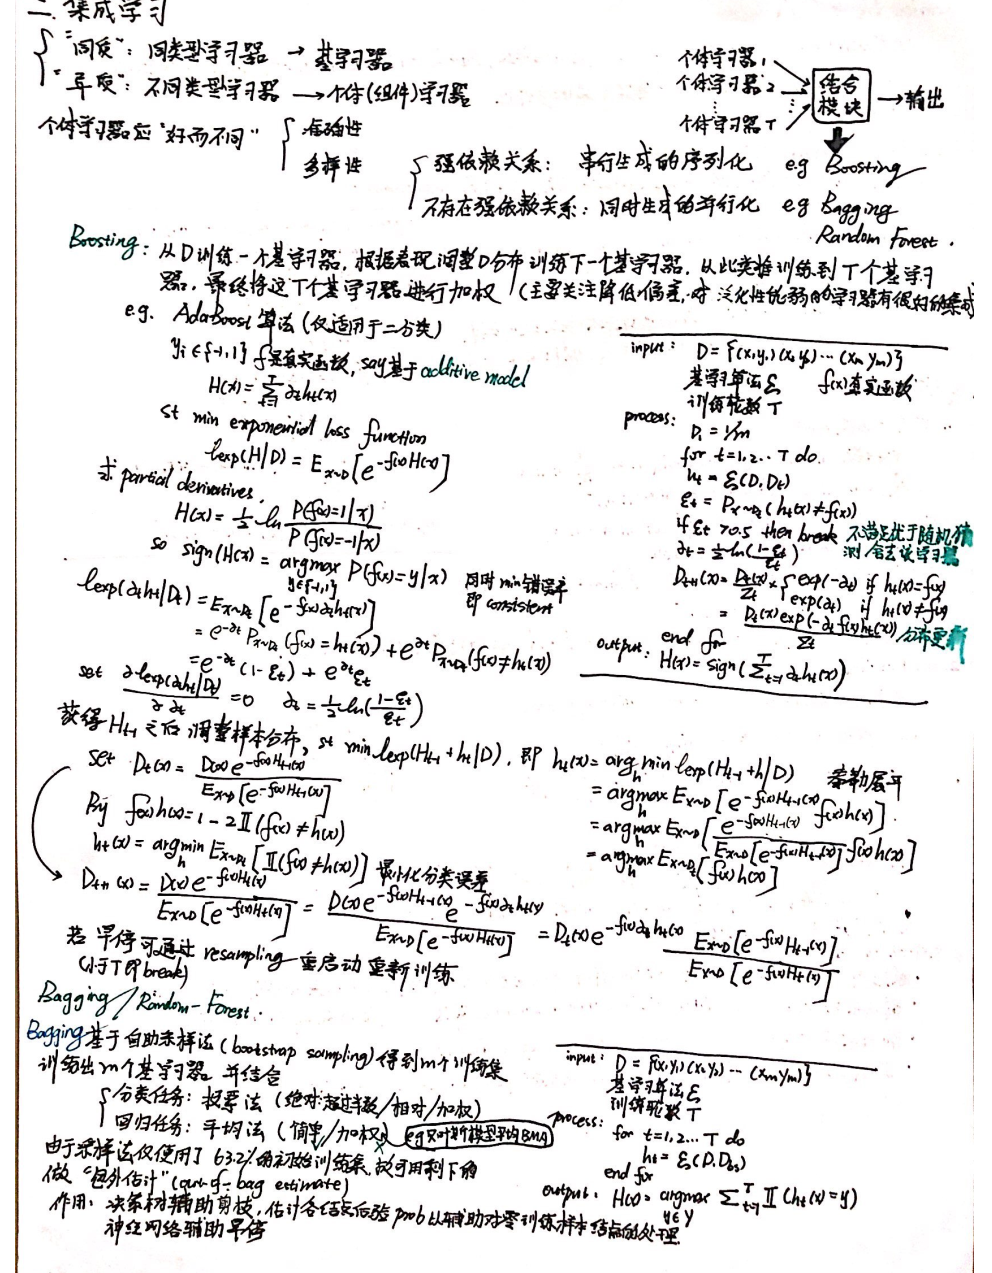 二. 集成学习
"同质": 同类型学习器 → 基学习器
"异质": 不同类型学习器 → 个体(组件)学习器
个体学习器应"好而不同" { 准确性
多样性
个体学习器1
个体学习器2
⋮
个体学习器T
结合模块 → 输出
强依赖关系: 串行生成的序列化 e.g Boosting
不存在强依赖关系: 同时生成的并行化 e.g Bagging
Random Forest.
Boosting: 从D训练一个基学习器, 根据表现调整D分布训练下一个基学习器, 从此类推训练到T个基学习
器, 最终将这T个基学习器进行加权 (主要关注降低偏差, 对泛化性能弱的学习器有很好的集成
e.g. AdaBoost 算法 (仅适用于二分类)
yi∈{-1,1} f是真实函数, say基于additive model
H(x) = Σ_{t=1}^T αt ht(x)
st min exponential loss function
lexp(H|D) = E_{x~D}[e^{-f(x)H(x)}]
求 partial derivatives,
H(x) = 1/2 ln P(f(x)=1|x) / P(f(x)=-1|x)
so sign(H(x)) = argmax_{y∈{-1,1}} P(f(x)=y|x) 同时min错误率
即 consistent
lexp(αtht|Dt) = E_{x~Dt}[e^{-f(x)αtht(x)}]
= e^{-αt} P_{x~Dt}(f(x)=ht(x)) + e^{αt} P_{x~Dt}(f(x)≠ht(x))
= e^{-αt}(1-εt) + e^{αt}εt
set ∂lexp(αtht|Dt)/∂αt = 0 αt = 1/2 ln((1-εt)/εt)
input: D = {(x1,y1)(x2,y2)...(xm,ym)}
基学习算法ξ f(x)真实函数
训练轮数T
process:
D1 = 1/m
for t=1,2..T do.
ht = ξ(D,Dt)
εt = P_{x~Dt}(ht(x)≠f(x))
if εt >0.5 then break 不满足优于随机猜
测 舍去该学习器
αt = 1/2 ln((1-εt)/εt)
Dt+1(x) = Dt(x)/Zt × { exp(-αt) if ht(x)=f(x)
exp(αt) if ht(x)≠f(x)
= Dt(x)exp(-αt f(x)ht(x))/Zt 分布更新
end for
output: H(x) = sign(Σ_{t=1}^T αtht(x))
获得Ht-1之后调整样本分布, st min lexp(Ht-1+ht|D), 即 ht(x) = arg_h min lexp(Ht-1+h|D) 泰勒展开
= argmax_h E_{x~D}[e^{-f(x)Ht-1(x)} f(x)h(x)]
= argmax_h E_{x~D}[e^{-f(x)Ht-1(x)} / E_{x~D}[e^{-f(x)Ht-1(x)}] f(x)h(x)]
= argmax_h E_{x~Dt}[f(x)h(x)]
set Dt(x) = D(x)e^{-f(x)Ht-1(x)} / E_{x~D}[e^{-f(x)Ht-1(x)}]
By f(x)h(x) = 1-2𝕀(f(x)≠h(x))
ht(x) = argmin_h E_{x~Dt}[𝕀(f(x)≠h(x))] 最小化分类误差
Dt+1(x) = D(x)e^{-f(x)Ht(x)} / E_{x~D}[e^{-f(x)Ht(x)}] = D(x)e^{-f(x)Ht-1(x)} e^{-f(x)αtht(x)} / E_{x~D}[e^{-f(x)Ht(x)}] = Dt(x)e^{-f(x)αtht(x)} E_{x~D}[e^{-f(x)Ht-1(x)}] / E_{x~D}[e^{-f(x)Ht(x)}]
若早停可通过 resampling 重启动重新训练
(小于T即break)
Bagging / Random-Forest.
Bagging基于自助采样法(bootstrap sampling)得到m个训练集
训练出m个基学习器 并结合
分类任务: 投票法 (绝对:超过半数/相对/加权)
回归任务: 平均法 (简单/加权) eg贝叶斯模型平均BMA
由于采样法仅使用了63.2%的初始训练集, 故可用剩下的
做"包外估计"(out-of-bag estimate)
作用: 决策树辅助剪枝, 估计各结点后验prob以辅助对零训练样本结点的处理.
神经网络辅助早停
input: D = {(x1,y1)(x2,y2)...(xm,ym)}
基学习算法ξ
训练轮数T
process:
for t=1,2...T do
ht = ξ(D,Dbs)
end for
output: H(x) = argmax_{y∈Y} Σ_{t=1}^T 𝕀(ht(x)=y)